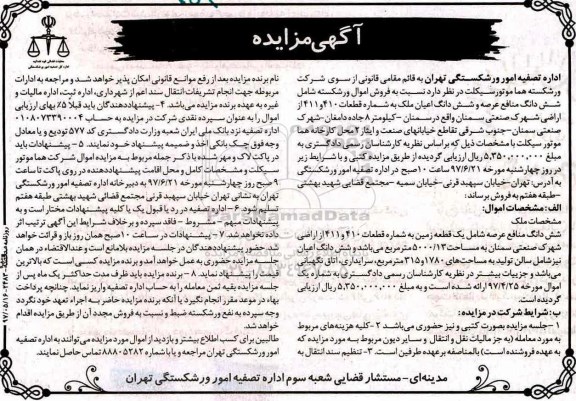 آگهی مزایده
اداره تصفیه امور ورشکستگی تهران به قائم مقامی قانونی از سوی شرکت
ورشکسته هما موتورسیکلت در نظر دارد نسبت به فروش اموال ورشکسته شامل
شش دانگ منافع عرصه و شش دانگ اعیان ملک به شماره قطعات ۴۱۰ و ۴۱۱ از
اراضی شهرک صنعتی سمنان واقع در سمنان - کیلومتر ۸ جاده دامغان - شهرک
صنعتی سمنان - جنوب شرقی تقاطع خیابانهای صنعت و ایثار ۲ محل کارخانه هما
موتور سیکلت با مشخصات ذیل که براساس نظریه کارشناسان رسمی دادگستری به
مبلغ ۵,۳۵۰,۰۰۰,۰۰۰ ریال ارزیابی گردیده از طریق مزایده کتبی و با شرایط زیر
در روز چهارشنبه مورخه ۹۷/۶/۲۱ ساعت ۱۰ صبح در اداره تصفیه امور ورشکستگی
به آدرس: تهران - خیابان سپهبد قرنی - خیابان سمیه - مجتمع قضایی شهید بهشتی
- طبقه هفتم به فروش برساند:
الف: مشخصات اموال:
مشخصات ملک
شش دانگ منافع عرصه شامل یک قطعه زمین به شماره قطعات ۴۱۰ و ۴۱۱ از اراضی
شهرک صنعتی سمنان به مساحت ۵۰۰۰/۱۳ مترمربع می باشد و شش دانگ اعیان
نیز شامل سالن تولید به مساحت های ۱۷۸۰ و ۳۱۵ مترمربع، سرایداری، اتاق نگهبانی
می باشد و جزییات بیشتر در نظریه کارشناسان رسمی دادگستری به شماره یک
اموال مورخه ۹۷/۴/۲۵ ارائه شده است و به مبلغ ۵,۳۵۰,۰۰۰,۰۰۰ ریال ارزیابی
گردیده است.
ب: شرایط شرکت در مزایده:
۱- جلسه مزایده بصورت کتبی و نیز حضوری می باشد ۲- کلیه هزینه های مربوط
به مورد معامله (به جز مالیات نقل و انتقال و سایر دیون مربوط به مورد مزایده که
به عهده فروشنده است) بالمناصفه برعهده طرفین است. ۳- تنظیم سند انتقال به
نام برنده مزایده بعد از رفع موانع قانونی امکان پذیر خواهد شد و مراجعه به ادارات
مربوطه جهت انجام تشریفات انتقال سند اعم از شهرداری، اداره ثبت، اداره مالیات و
غیره به عهده برنده مزایده می باشد. ۴- پیشنهاددهندگان باید قبلا ۵٪ بهای ارزیابی
اموال را به عنوان سپرده نقدی شرکت در مزایده به حساب ۰۱۰۸۰۷۳۳۹۰۰۰۴
اداره تصفیه نزد بانک ملی ایران شعبه وزارت دادگستری کد ۵۷۷ تودیع و یا معادل
وجه فوق چک بانکی اخذ و ضمیمه پیشنهاد خود نمایند. ۵- پیشنهادات باید
در پاکت لاک و مهر شده با ذکر جمله مربوط به مزایده اموال شرکت هما موتور
سیکلت و مشخصات کامل و محل اقامت پیشنهاددهنده در روی پاکت تا ساعت
۹ صبح روز چهارشنبه مورخه ۹۷/۶/۲۱ به دبیرخانه اداره تصفیه امور ورشکستگی
تهران به نشانی تهران خیابان سپهبد قرنی مجتمع قضائی شهید بهشتی طبقه هفتم
تسلیم شود. ۶- اداره تصفیه در رد یا قبول یک یا کلیه پیشنهادات مختار است و به
پیشنهادات مبهم - مشروط - فاقد سپرده و برخلاف شرایط این آگهی ترتیب اثر
داده نخواهد شد. ۷- پیشنهادات در ساعت ۱۰ صبح همان روز باز و قرائت خواهد
شد. حضور پیشنهاددهندگان در جلسه مزایده بلامانع است و عندالاقتضاء در همان
جلسه مزایده حضوری به عمل خواهد آمد و برنده مزایده کسی است که بالاترین
قیمت را پیشنهاد نماید. ۸- برنده مزایده باید ظرف مدت حداکثر یک ماه پس از
جلسه مزایده بقیه ثمن معامله را به حساب اداره تصفیه واریز نماید. چنانچه پرداخت
بهاء در موعد مقرر انجام نگیرد یا آنکه برنده مزایده حاضر به اجراء تعهد خود نگردد
وجه سپرده به نفع ورشکسته ضبط و نسبت به فروش مجدد آن از طریق مزایده اقدام
خواهد شد.
طالبین برای کسب اطلاع بیشتر و بازدید از اموال مورد مزایده می توانند به اداره تصفیه
امور ورشکستگی تهران مراجعه و یا با شماره ۸۸۸۰۵۲۸۲ تماس حاصل نمایند.
مدینه ای - مستشار قضایی شعبه سوم اداره تصفیه امور ورشکستگی تهران